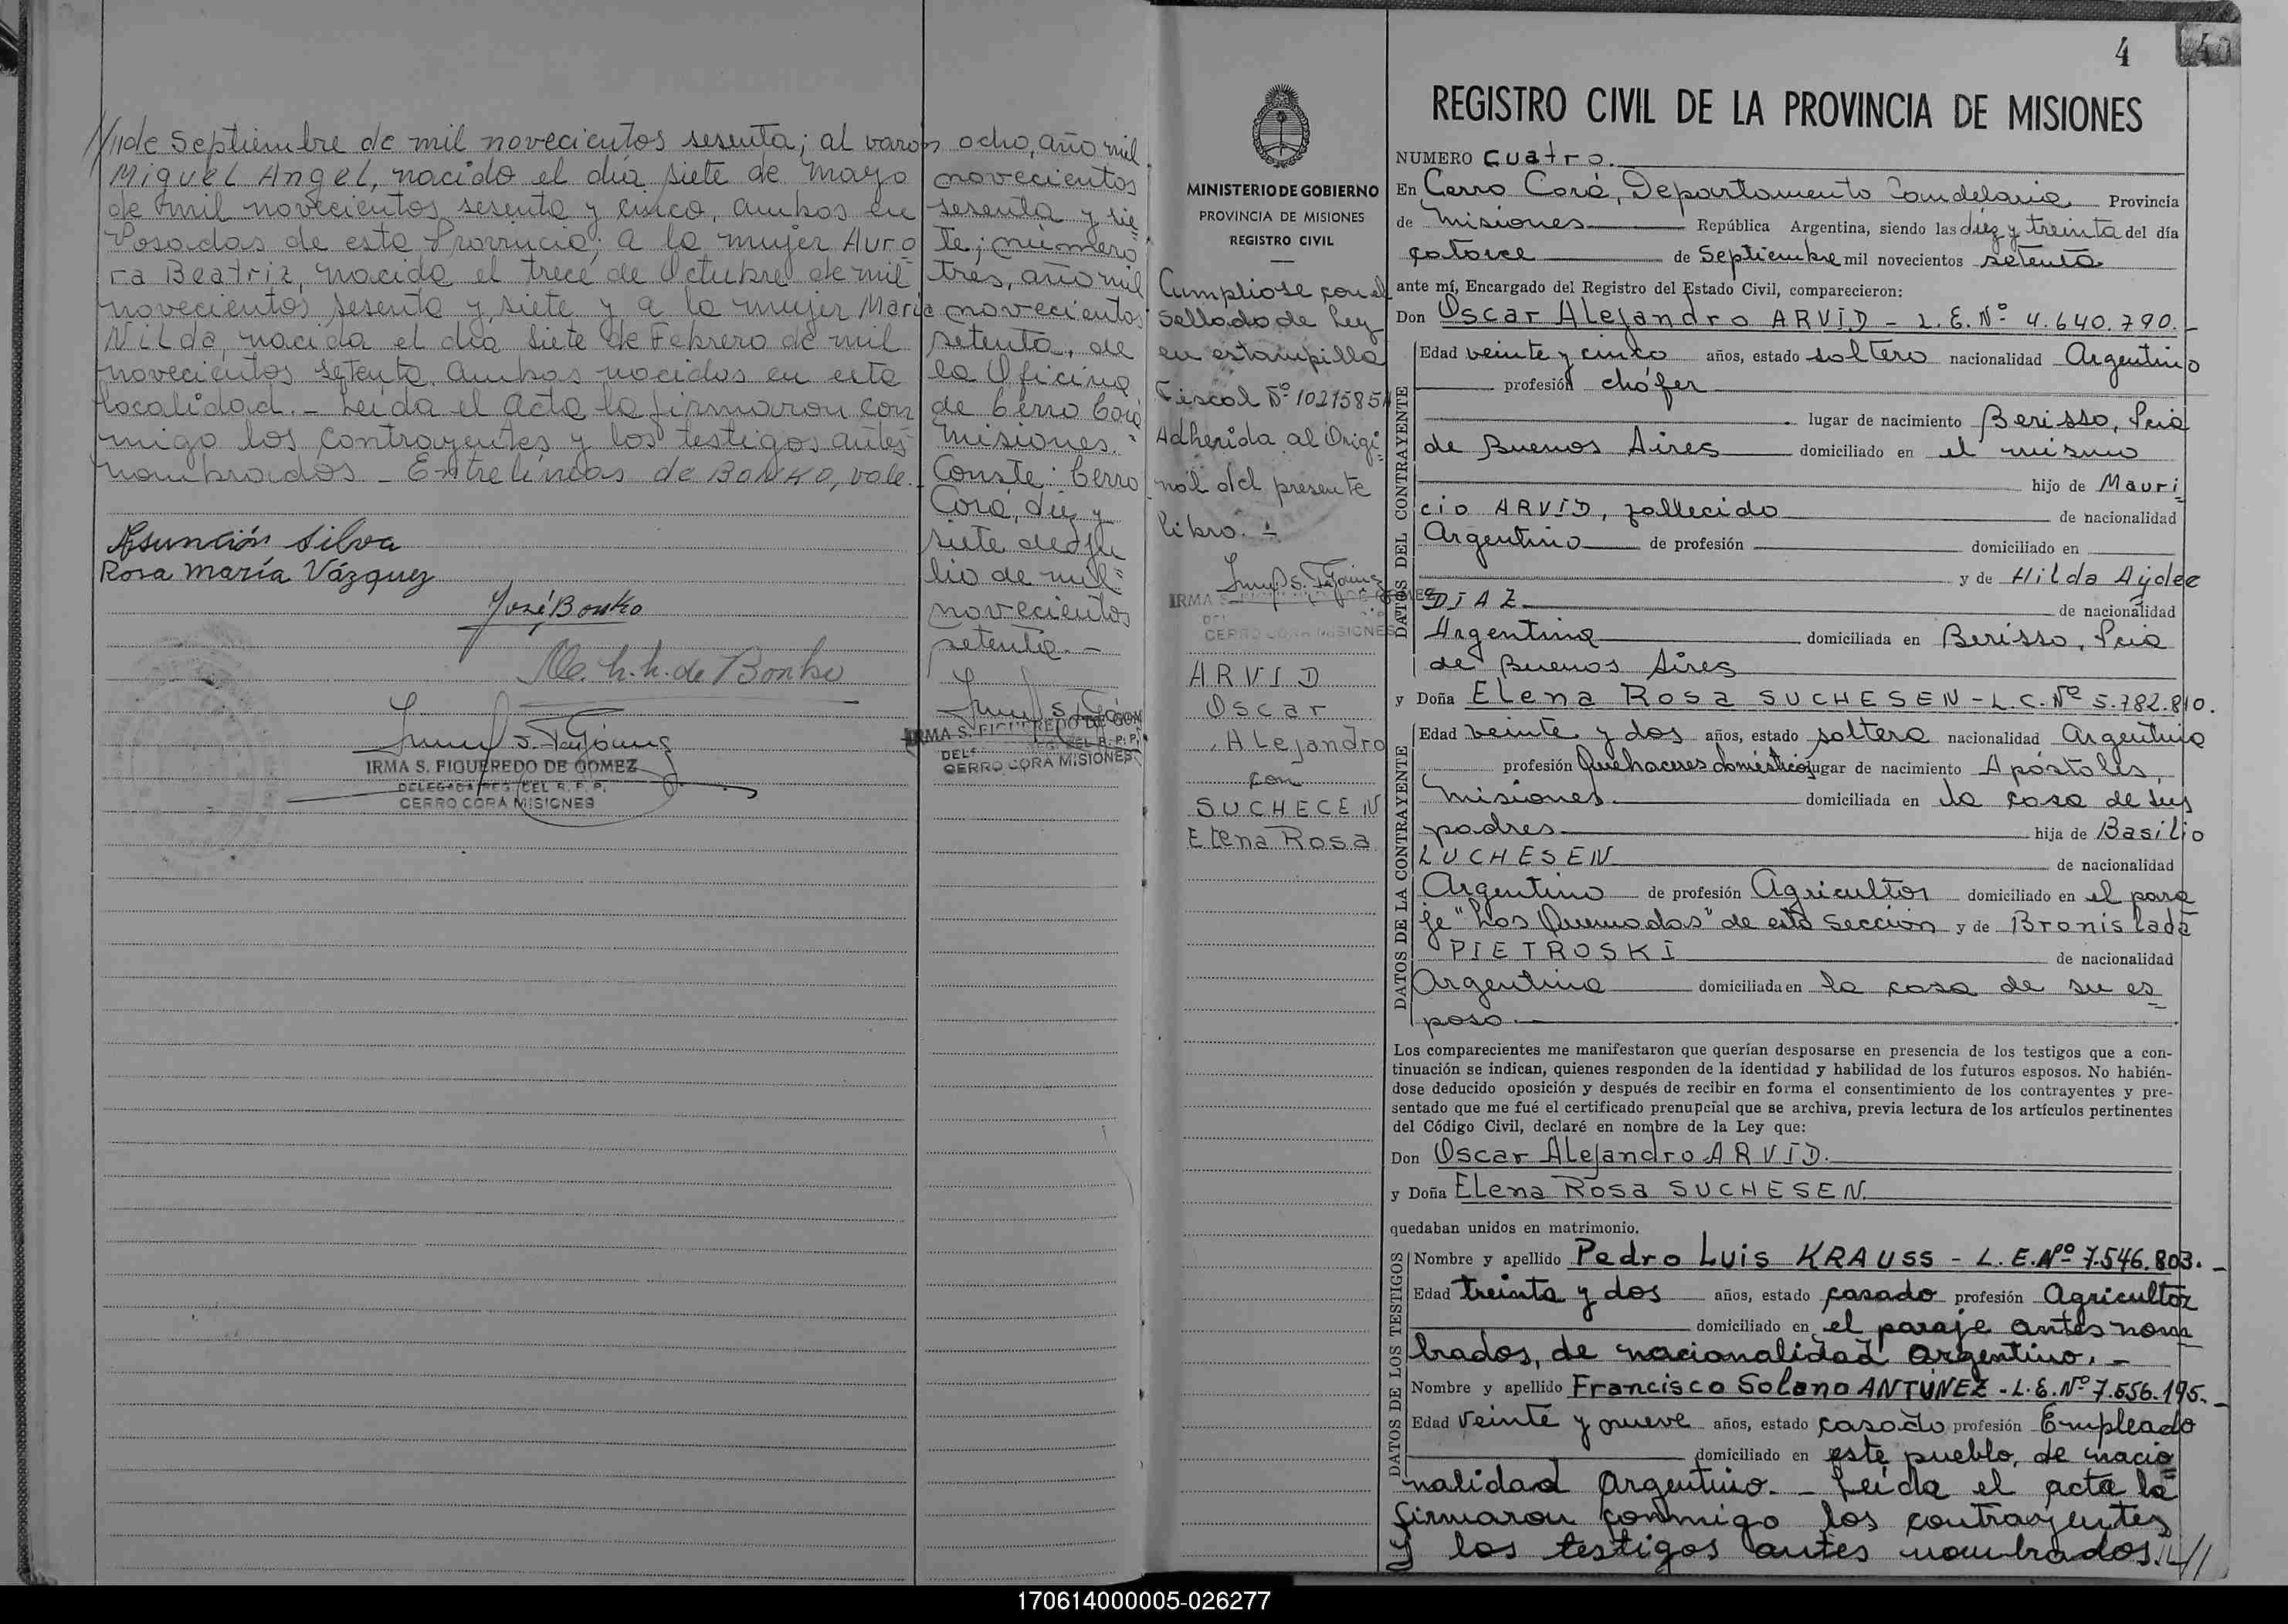 //de Septiembre de mil novecientos sesenta; al varón
Miguel Angel, nacido el día siete de Mayo
de mil novecientos sesenta y cinco, ambos en
Posadas de esta Provincia; a la mujer Auro
ra Beatriz, nacida el trece de Octubre de mil
novecientos sesenta y siete y a la mujer María
Nilda, nacida el día siete de Febrero de mil
novecientos setenta, ambas nacidas en esta
localidad. - Leída el Acta la firmaron con
migo los contrayentes y los testigos antes
nombrados - Entrelíneas de BONKO, vale. -
Asunción Silva
Rosa María Vázquez
José Bonko
de Bonko
IRMA S. FIGUEREDO DE GOMEZ
DELEGADA REG. DEL R. P. P.
CERRO CORÁ MISIONES
ocho, año mil
novecientos
sesenta y sie
te; número
tres, año mil
novecientos
setenta, de
la Oficina
de Cerro Corá
Misiones.-
Conste: Cerro
Corá, diez y
siete de Ju
lio de mil
novecientos
setenta. -
IRMA S. FIGUEREDO DE GOM
CERRO CORA MISIONES
MINISTERIO DE GOBIERNO
PROVINCIA DE MISIONES
REGISTRO CIVIL
Cumpliose con el
Sellado de Ley
en estampilla
Fiscal Nº 1021585
Adherida al Origi
nal del presente
libro. -
IRMA S.
CERRO CORA MISIONES
ARVID
Oscar
Alejandro
con
SUCHECEN
Elena Rosa
4
40
REGISTRO CIVIL DE LA PROVINCIA DE MISIONES
NUMERO cuatro.
En Cerro Corá, Departamento Candelaria Provincia
de Misiones República Argentina, siendo las diez y treinta del día
catorce de Septiembre mil novecientos setenta
ante mí, Encargado del Registro del Estado Civil, comparecieron:
Don Oscar Alejandro ARVID - L.E. Nº 4.640.790. -
DATOS DEL CONTRAYENTE
Edad veinte y cinco años, estado soltero nacionalidad Argentino
profesión chófer
lugar de nacimiento Berisso, Pcia
de Buenos Aires domiciliado en el mismo
hijo de Mauri
cio ARVID, fallecido de nacionalidad
Argentino de profesión domiciliado en
y de Hilda Aydee
DIAZ de nacionalidad
Argentina domiciliada en Berisso, Pcia
de Buenos Aires
y Doña Elena Rosa SUCHESEN - L.C. Nº 5.782.810.
DATOS DE LA CONTRAYENTE
Edad veinte y dos años, estado soltera nacionalidad Argentina
profesión Quehaceres domésticos lugar de nacimiento Apóstoles,
Misiones domiciliada en la casa de sus
padres hija de Basilio
LUCHESEN de nacionalidad
Argentino de profesión Agricultor domiciliado en el para
je "Los Quemados" de esta Sección y de Bronislada
PIETROSKI de nacionalidad
Argentina domiciliada en la casa de su es
poso. -
Los comparecientes me manifestaron que querían desposarse en presencia de los testigos que a con-
tinuación se indican, quienes responden de la identidad y habilidad de los futuros esposos. No habién-
dose deducido oposición y después de recibir en forma el consentimiento de los contrayentes y pre-
sentado que me fué el certificado prenupcial que se archiva, previa lectura de los artículos pertinentes
del Código Civil, declaré en nombre de la Ley que:
Don Oscar Alejandro ARVID.
y Doña Elena Rosa SUCHESEN.
quedaban unidos en matrimonio.
DATOS DE LOS TESTIGOS
Nombre y apellido Pedro Luis KRAUSS - L.E. Nº 7.546.803. -
Edad treinta y dos años, estado casado profesión Agricultor
domiciliado en el paraje antes nom
brados, de nacionalidad argentino. -
Nombre y apellido Francisco Solano ANTÚNEZ - L.E. Nº 7.556.195. -
Edad Veinte y nueve años, estado casado profesión Empleado
domiciliado en este pueblo, de nacio
nalidad Argentino. - Leída el acta la
firmaron conmigo los contrayentes
y los testigos antes nombrados. //
170614000005-026277